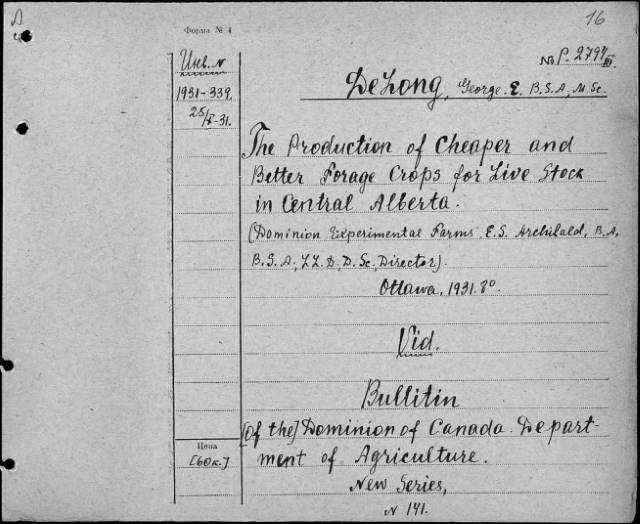 Форма № 4
16
Инв. N
1931-339.
25/X-31.
№ P. 2794/III.
DeLong, George. E. B.S.A., M.Sc.
The Production of Cheaper and
Better Forage Crops for Live Stock
in Central Alberta.
(Dominion Experimental Farms, E.S. Archibald, B.A,
B.S.A., LL.D., D.Sc., Director).
Ottawa, 1931. 8°.
Vid.
Bullitin
[of the] Dominion of Canada. Depart-
ment of Agriculture.
New Series,
N 141.
Цена
[60к.]